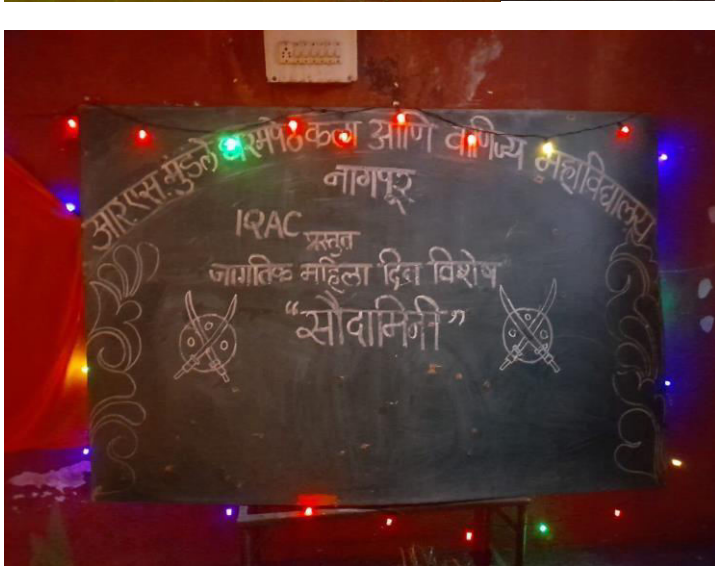 आर.एस.मुंडले धरमपेठ कला आणि वाणिज्य महाविद्यालय
नागपूर
IQAC
प्रस्तुत
जागतिक महिला दिन विशेष
“सौदामिनी”